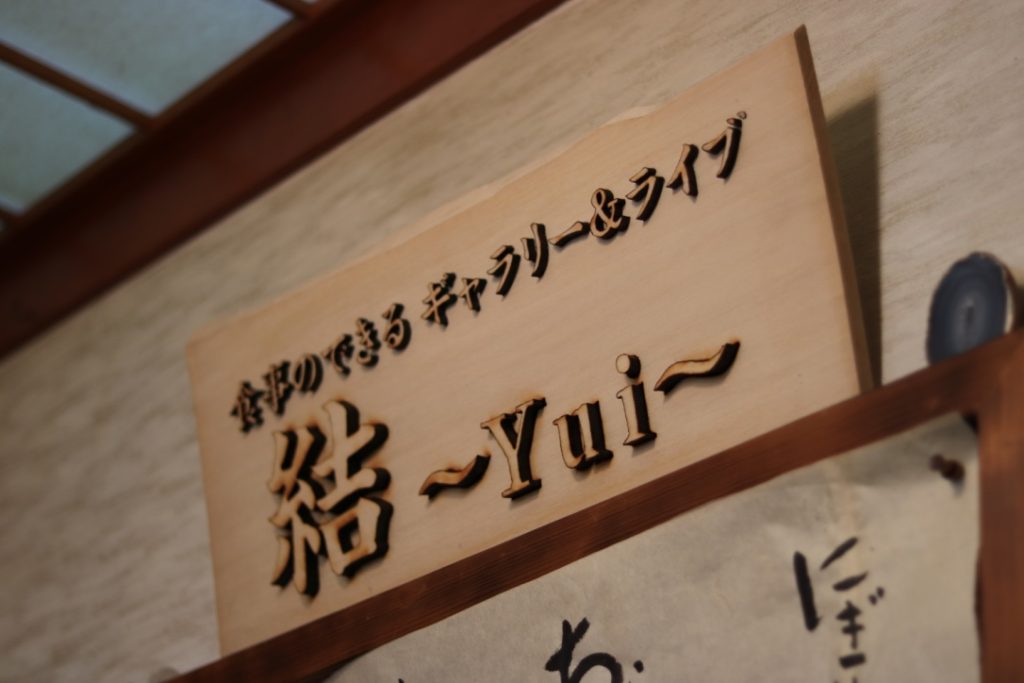 食事のできる ギャラリー&ライブ
結 ～Yui～